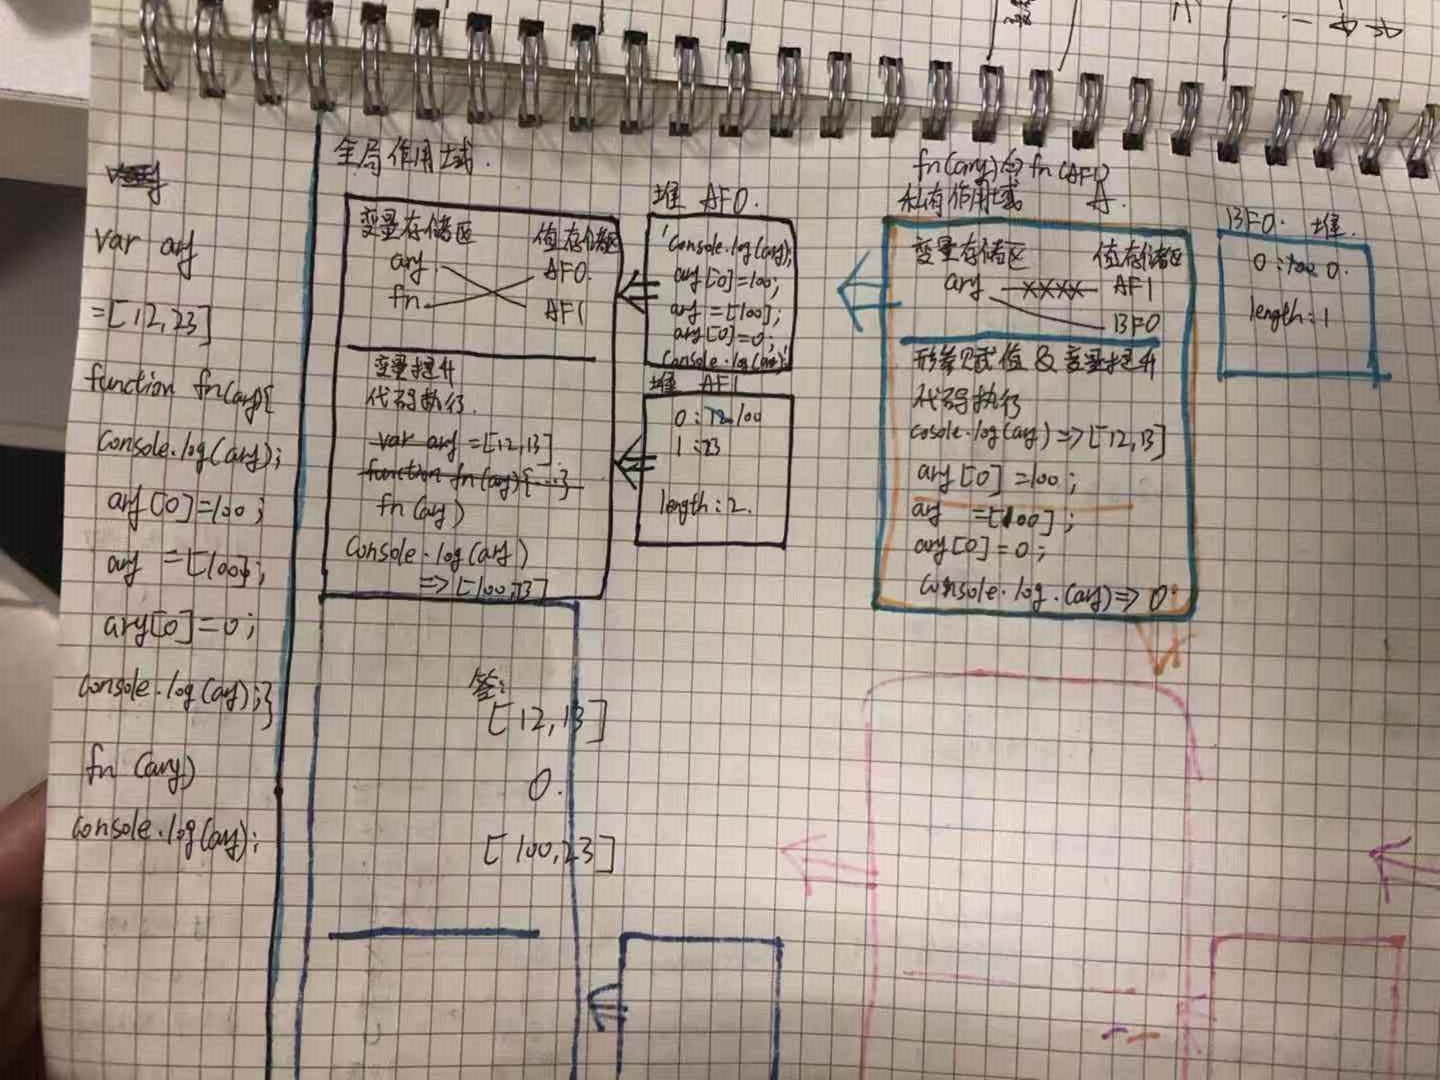 var ary
=[12,23]
function fn(ary){
console.log(ary);
ary[0]=100;
ary =[100];
ary[0]=0;
console.log(ary);}
fn (ary)
console.log(ary);
全局作用域.
变量存储区 值存储区
ary AF0.
fn AF1
变量提升
代码执行.
var ary =[12,13]
function fn(ary){...}
fn(ary)
console.log(ary)
=>[100,23]
答:
[12,13]
0.
[100,23]
堆 AF0.
'console.log(ary);
ary[0]=100;
ary =[100];
ary[0]=0;
console.log(ary)'
堆 AF1
0:12 100
1:23
length:2.
fn(ary) fn(AF1)
私有作用域 A.
变量存储区 值存储区
ary xxxx AF1
BF0
形参赋值 & 变量提升
代码执行
cosole.log(ary)=>[12,13]
ary[0]=100;
ary =[100];
ary[0]=0;
console.log.(ary)=> 0
BF0. 堆.
0:100 0.
length:1